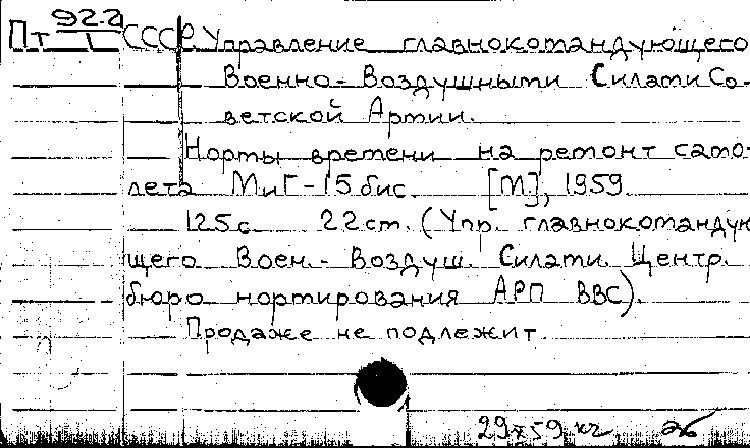 92-2
Пт 1 СССР. Управление главнокомандующего
Военно-Воздушными Силами Со-
ветской Армии.
Нормы времени на ремонт само-
лета МиГ-15 бис. [М], 1959.
125с. 22 см. (Упр. главнокомандую
щего Воен.-Воздуш. Силами. Центр.
бюро нормирования АРП ВВС).
Продаже не подлежит.